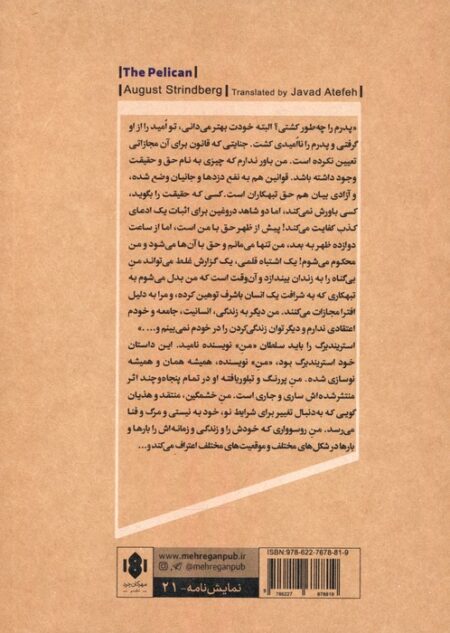 |The Pelican|
|August Strindberg | Translated by Javad Atefeh|
«پدرم را چه‌طور کشتی؟ البته خودت بهتر می‌دانی، تو اُمید را از او
گرفتی و پدرم را نااُمیدی کشت. جنایتی که قانون برای آن مجازاتی
تعیین نکرده است. من باور ندارم که چیزی به نام حق و حقیقت
وجود داشته باشد. قوانین هم به نفع دزدها و جانیان وضع شده،
و آزادی بیان هم حق تبهکاران است. کسی که حقیقت را بگوید،
کسی باورش نمی‌کند، اما دو شاهد دروغین برای اثبات یک ادعای
کذب کفایت می‌کند! پیش از ظهر حق با من است، اما از ساعت
دوازده ظهر به بعد، من تنها می‌مانم و حق با آن‌ها می‌شود و من
محکوم می‌شوم! یک اشتباه قلمی، یک گزارش غلط می‌تواند منِ
بی‌گناه را به زندان بیندازد و آن‌وقت است که من بدل می‌شوم به
تبهکاری که به شرافت یک انسان باشرف توهین کرده، و مرا به دلیل
افترا مجازات می‌کنند. من دیگر به زندگی، انسانیت، جامعه و خودم
اعتقادی ندارم و دیگر توان زندگی‌کردن را در خودم نمی‌بینم و....»
استریندبرگ را باید سلطان «من» نویسنده نامید. این داستان
خود استریندبرگ بود، «من» نویسنده، همیشه همان و همیشه
نوسازی شده. منِ پررنگ و تبلوریافته او در تمام پنجاه‌وچند اثر
منتشرشده‌اش ساری و جاری است. منِ خشمگین، منتقد و هذیان
گویی که به‌دنبال تغییر برای شرایط نو، خود به نیستی و مرگ و فنا
می‌رسد. منِ روسوواری که خودش را و زندگی و زمانه‌اش را بارها و
بارها در شکل‌های مختلف و موقعیت‌های مختلف اعتراف می‌کند و...
www.mehreganpub.ir
@mehreganpub
نمایش‌نامه - ۲۱
مهرگان خرد
ISBN: 978-622-7678-81-9
9 786227 678819